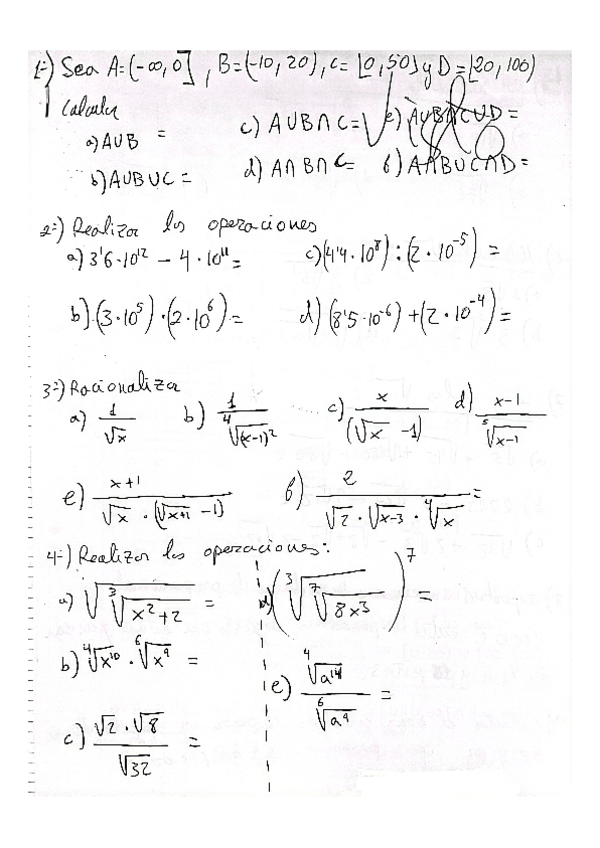 1-) Sea A=(-∞,0], B=(-10,20), C=[0,50} y D=[20,100)
Calcula
a) A∪B =
b) A∪B∪C =
c) A∪B∩C=
d) A∩B∩C=
e) (A∪B∩C∪D=
f) A∩B∪C∩D=
2-) Realizar las operaciones
a) 3'6·10¹² - 4·10¹¹=
b) (3·10⁵)·(2·10⁶)=
c) (4'4·10⁸):(2·10⁻⁵) =
d) (8'5·10⁻⁶)+(2·10⁻⁴)=
3-) Racionaliza
a) 1/√x
b) 1/⁴√(x-1)²
c) x/(√x -1)
d) x-1/⁵√x-1
e) x+1/√x·(√x+1 -1)
f) 2/√2·√x-3·⁴√x=
4-) Realizar las operaciones:
a) √³√√x²+2 =
b) ⁴√x¹⁰·⁶√x⁹ =
c) √2·√8/√32 =
d) (³√⁷√8x³)⁷ =
e) ⁴√a¹⁴/⁶√a⁹ =